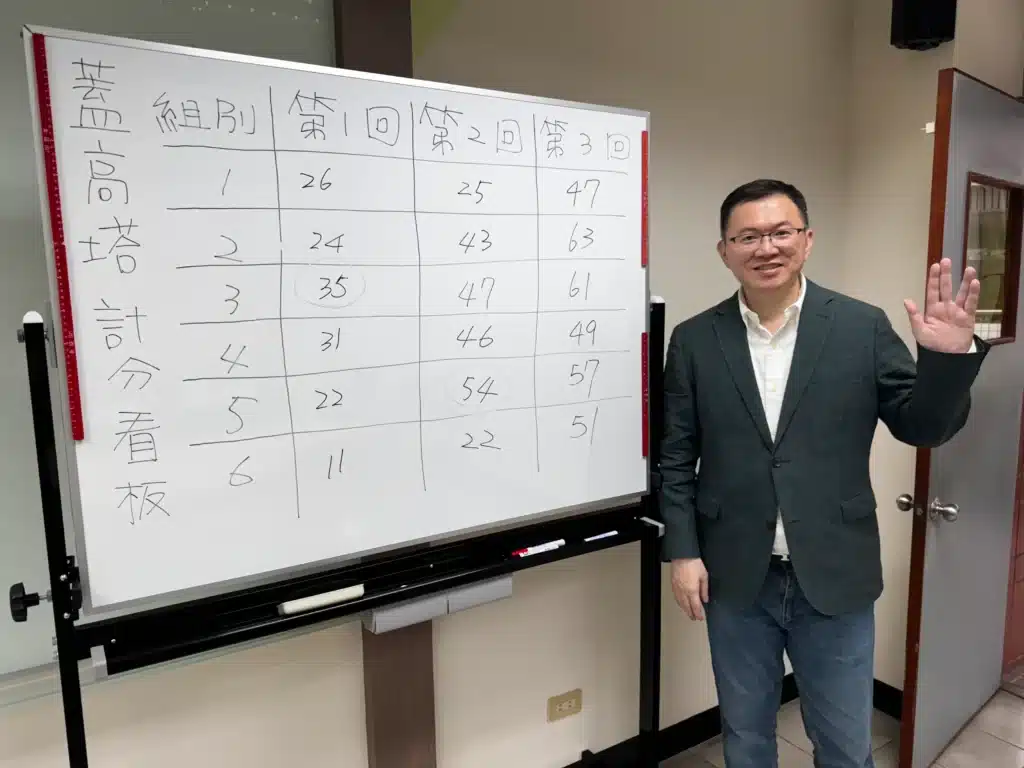 蓋高塔計分看板
組別 第1回 第2回 第3回
1 26 25 47
2 24 43 63
3 35 47 61
4 31 46 49
5 22 54 57
6 11 22 51